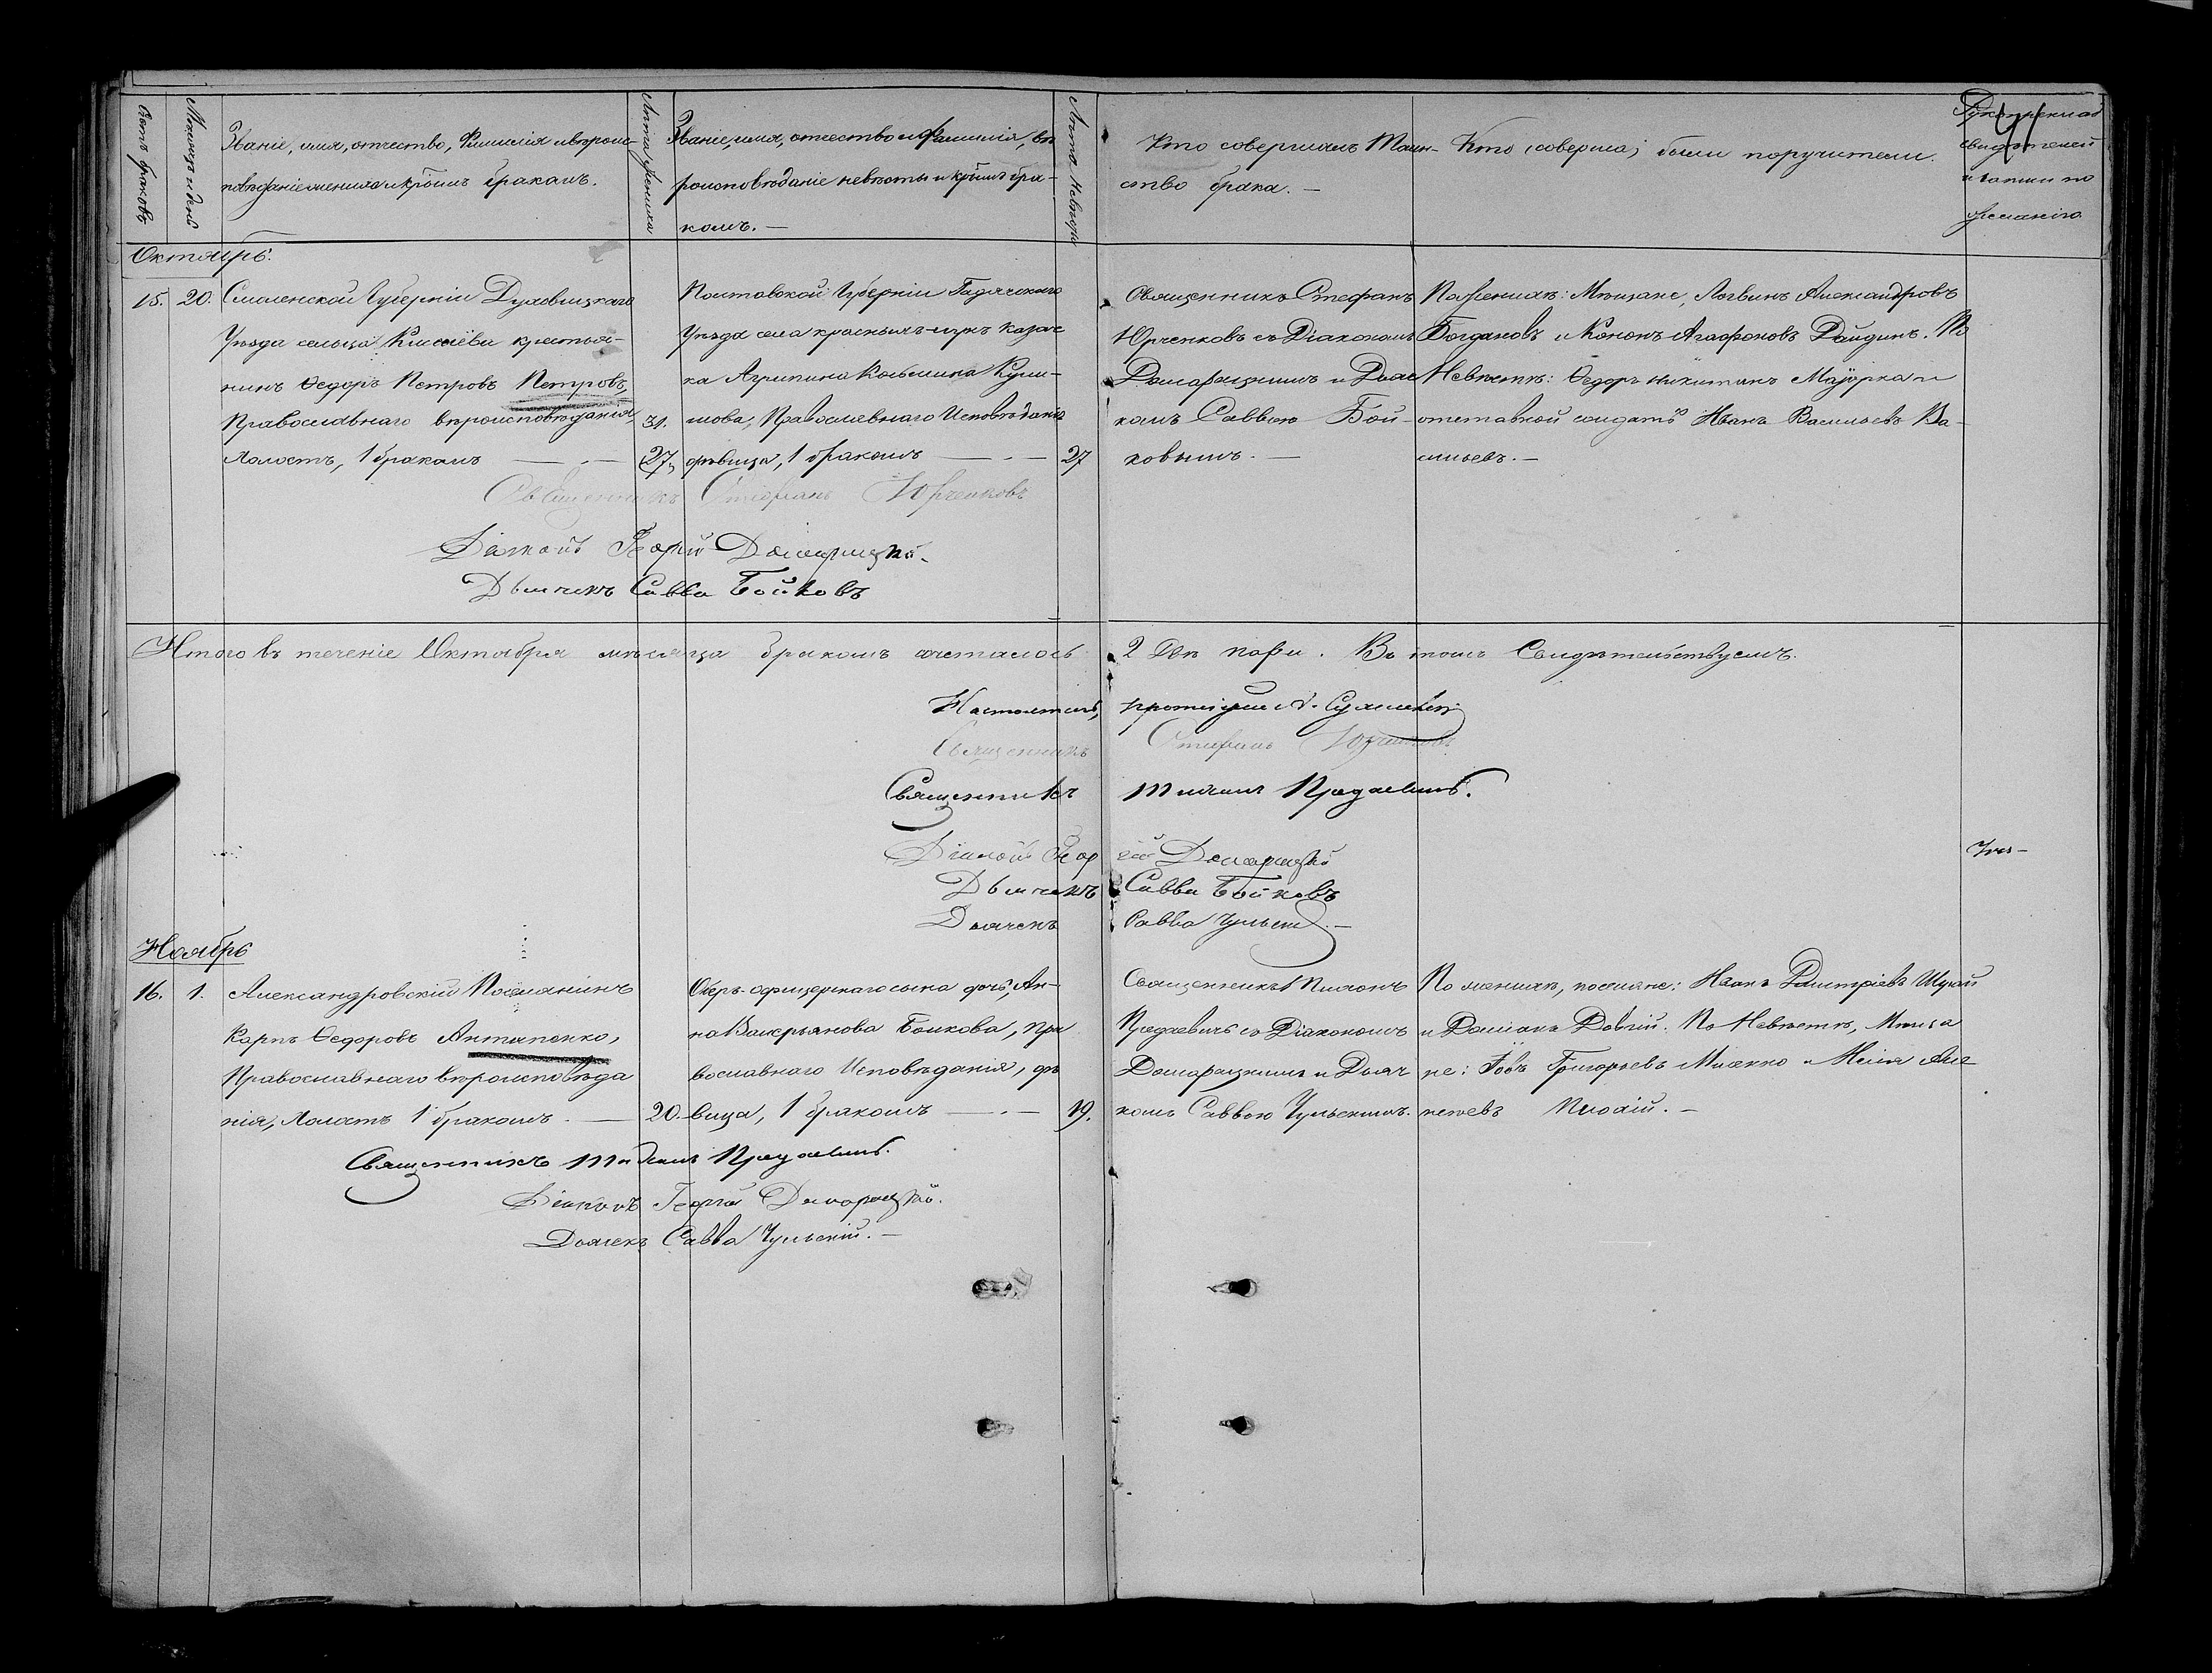 Счетъ браковъ
Мѣсяцъ и день
Званіе, имя, отчество, Фамилія и вѣроис-
повѣданіе жениха и кѣимъ бракомъ.
Лѣта жениха
Званіе, имя, отчество и фамилія, вѣ
роисповѣданіе невѣсты и кѣимъ бра-
комъ. —
Лѣта Невѣсты
Кто совершалъ Таин-
ство брака. —
Кто были поручители.
свидѣтелей
по
желанію
Октябрь.
15. 20.
Смоленской Губерніи Духовщзкаго
Уѣзда сельца крестья-
нинъ Ѳедоръ Петровъ Петровъ,
Православнаго вѣроисповѣданія,
Холостъ, 1 бракомъ — . —
31.
27,
Полтавской Губерніи Гадячскаго
Уѣзда села казач
ка Агрипина Косьмина
Православнаго Исповѣданія
дѣвица, 1 бракомъ — . —
27
Священникъ Стефанъ
Юрченковъ съ Діакономъ
Домарацкимъ и Дьяч
комъ Саввою Бой-
ковымъ. —
По Женихѣ: Мѣщане, Логвинъ Александровъ
Богдановъ и Кононъ Агафоновъ Дайдинъ. По
Невѣстѣ: Ѳедоръ Никитинъ и
отставной солдатъ Иванъ Васильевъ Ва-
сильевъ. —
Священникъ Стефанъ Юрченковъ
Діаконъ Георгій Домарацкій.
Дьячекъ Савва Бойковъ
Итого въ теченіе Октября мѣсяца бракомъ сочеталось 2 Двѣ пары. Въ томъ Свидѣтельствуемъ.
Настоятель, протоіерей
Священникъ Стефанъ Юрченковъ
Священникъ Предаевичъ.
Діаконъ Георгій Домарацкій
Дьячекъ Савва Бойковъ
Дьячекъ Савва Чульскій. —
Ноябрь
16. 1.
Александровскій Посѣлянинъ
Карпъ Ѳедоровъ Антипенко,
Православнаго вѣроисповѣда
нія, Холостъ 1 бракомъ. —
20.
Оберъ-офицерскаго сына дочь, Ан-
на Валерьянова Бойкова, Пра
вославнаго Исповѣданія, дѣ
вица, 1 бракомъ — . —
19.
Священникъ
Предаевичъ съ Діакономъ
Домарацкимъ и Дьяч
комъ Саввою Чульскимъ.
По женихѣ, поселяне: Иванъ Димитріевъ
и Даміанъ Довгій. По Невѣстѣ, Мѣща
не: Іовъ Григорьевъ и
Священникъ Предаевичъ.
Діаконъ Георгій Домарацкій.
Дьячекъ Савва Чульскій. —